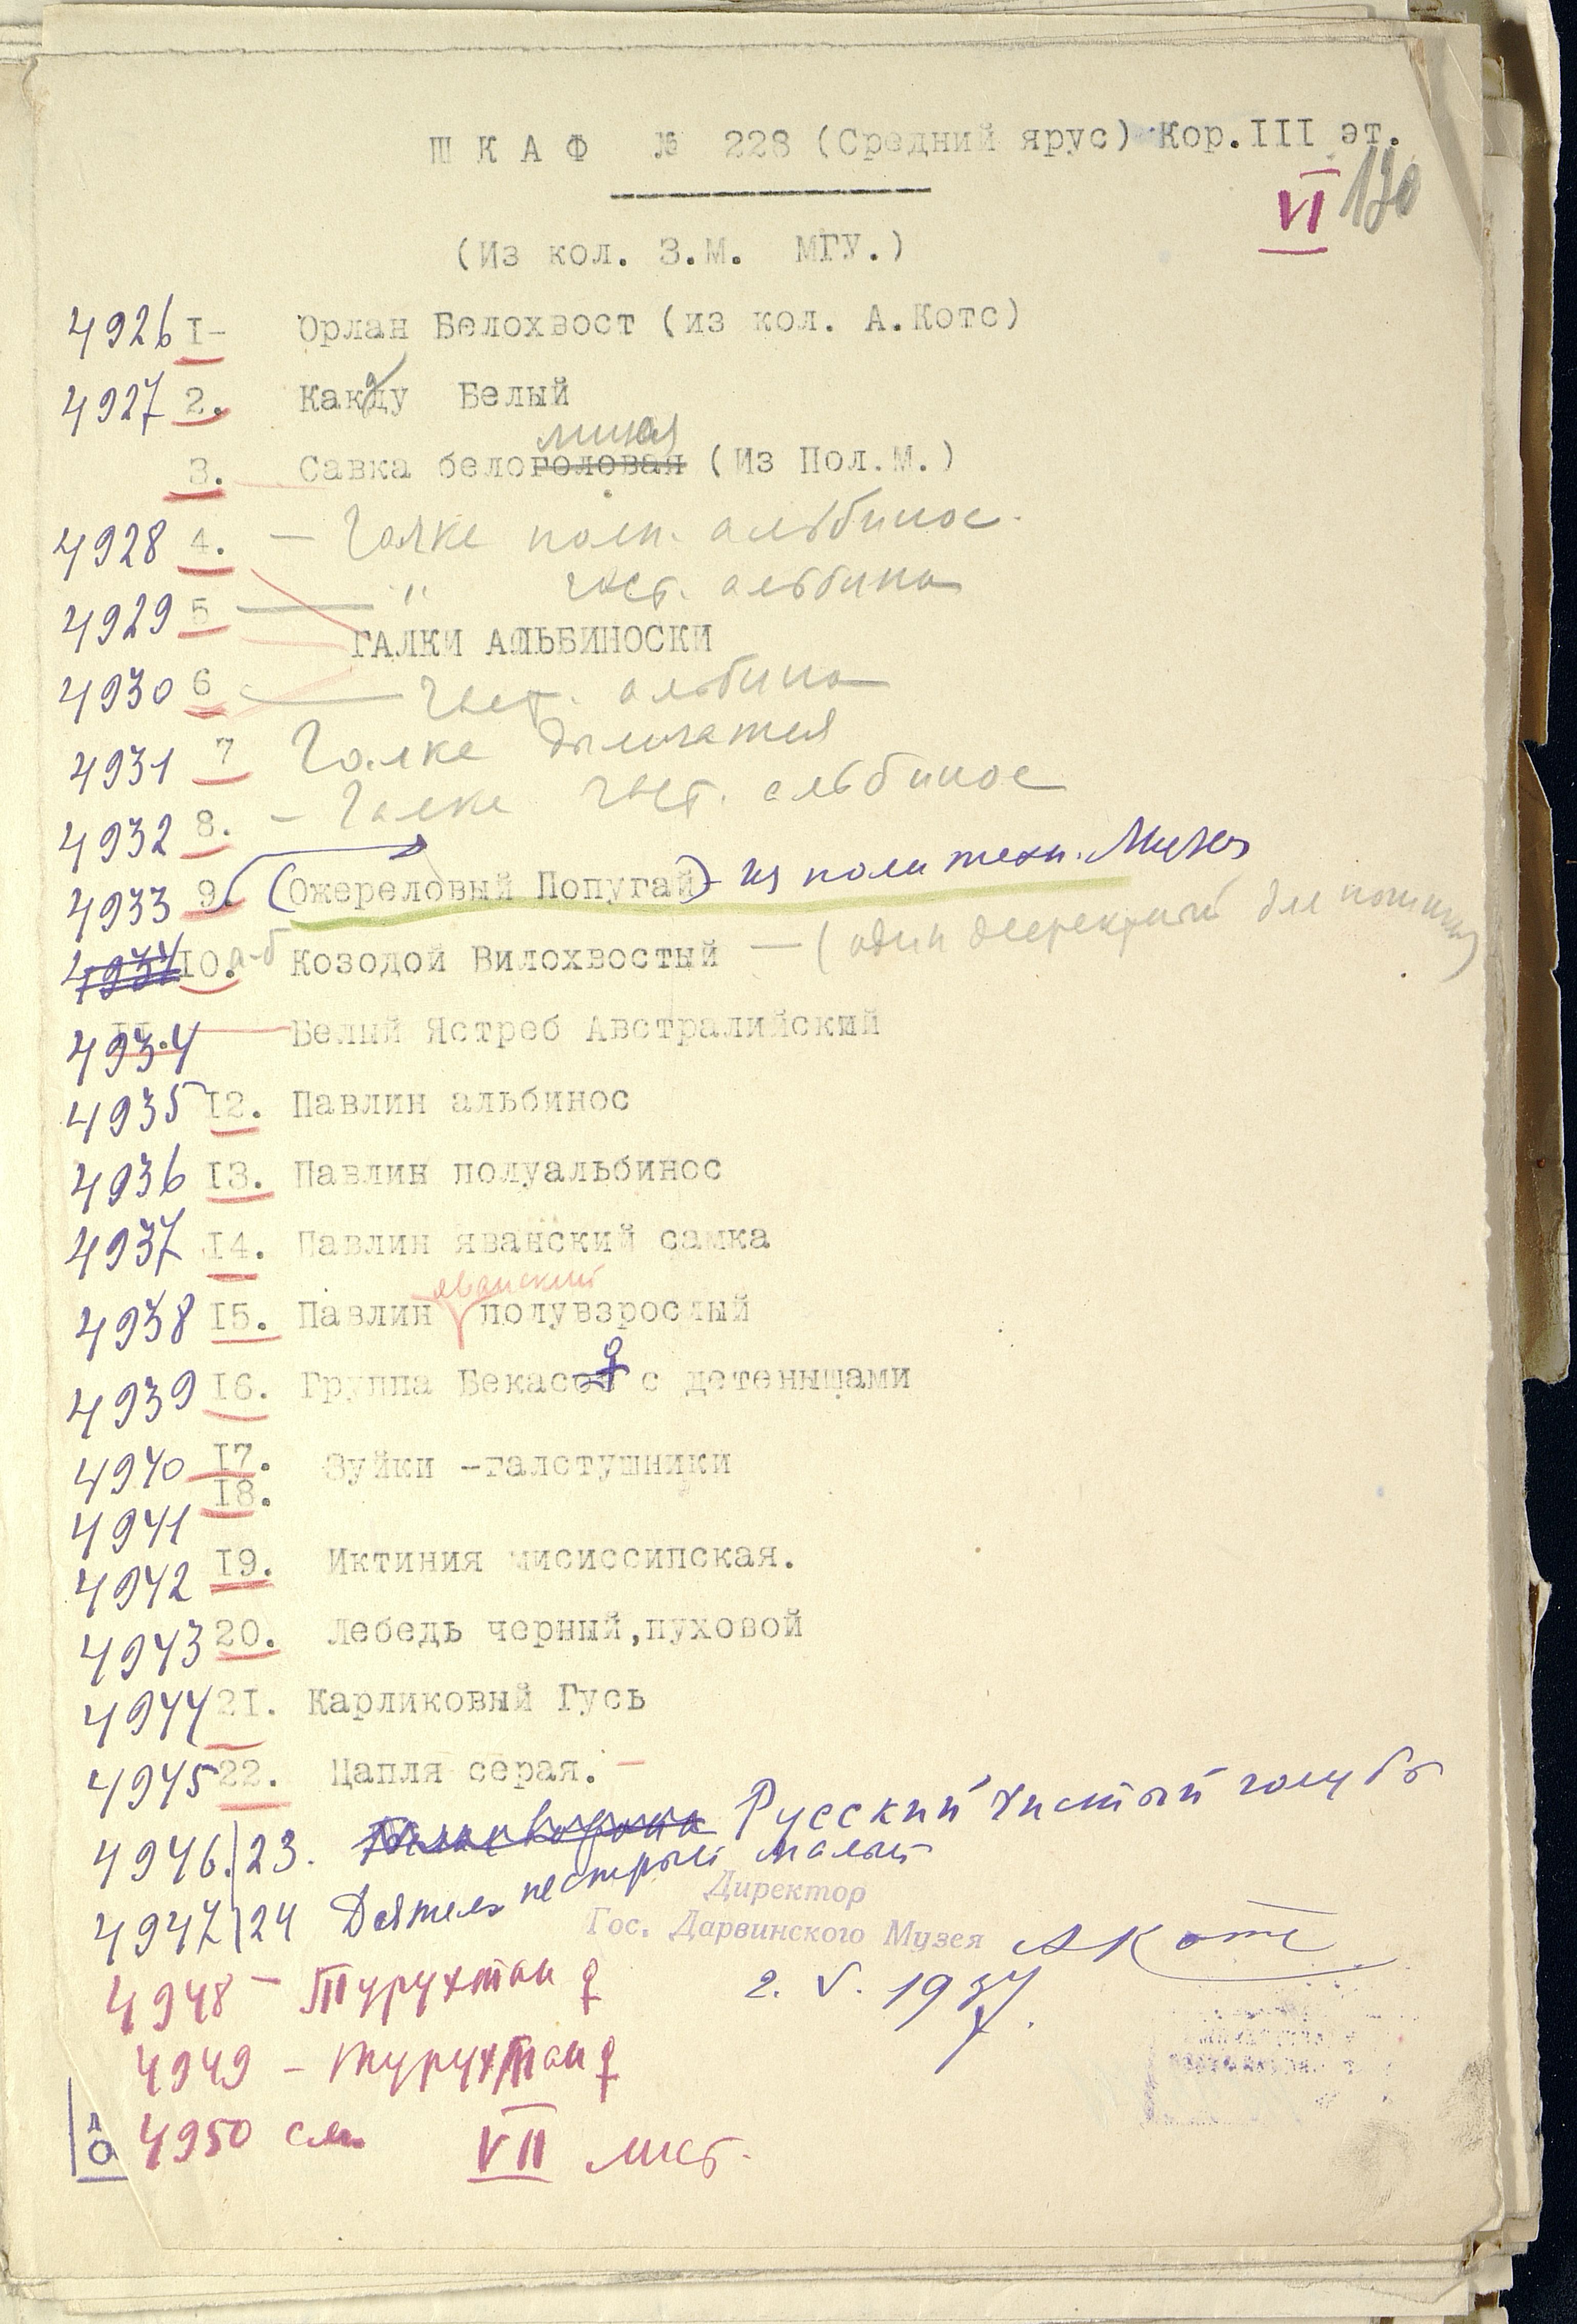 ШКАФ № 228 (Средний ярус) Кор. III эт.
VI 130
(Из кол. З.М. МГУ.)
4926 I- Орлан Белохвост (из кол. А.Котс)
4927 2. Какаду Белый
лицая
3. Савка белоголовая (Из Пол.М.)
4928 4. — Галка полн. альбинос.
4929 5 — " част. альбино
ГАЛКИ АЛЬБИНОСКИ
4930 6 — част. альбино
4931 7 Галка дымчатая
4932 8. — Галка част. альбинос
4933 9. (Ожереловый Попугай) - из политехн. Музея
4934 10. а-б Козодой Вилохвостый — (один для
4934 II. — Белый Ястреб Австралийский
4935 I2. Павлин альбинос
4936 I3. Павлин полуальбинос
4937 I4. Павлин яванский самка
яванский
4938 I5. Павлин полувзрослый
4939 I6. Группа Бекасов ♀ с детенышами
4940 I7. Зуйки -галстушники
4941 I8.
4942 I9. Иктиния мисиссипская.
4943 20. Лебедь черный,пуховой
4944 2I. Карликовый Гусь
4945 22. Цапля серая. —
4946. 23. Русский чистый голубь
4947 24 Дятел пестрый малый
Директор
Гос. Дарвинского Музея АКотс
2. V. 1937.
4948 - Турухтан ♀
4949 - Турухтан ♀
4950 см. VII лист.